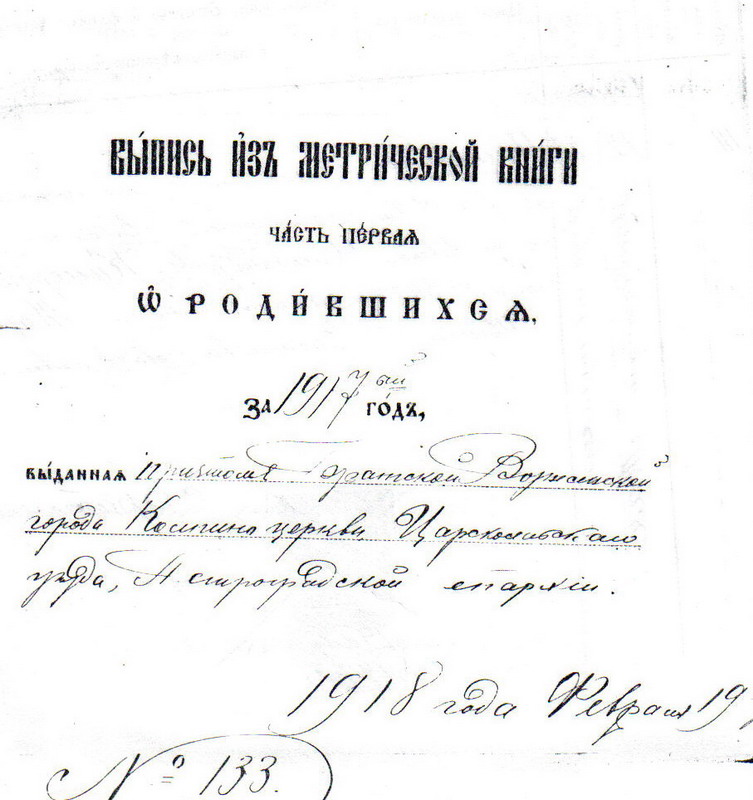 ВЫ́ПИСЬ И҆ЗЪ МЕТРИ́ЧЕСКОЙ КНИ́ГИ
ЧА́СТЬ ПЕ́РВАѦ
Ѡ҆ РОДИ́ВШИХСѦ,
ЗА 1917ый ГО́ДЪ,
ВЫ́ДАННАѦ Причтомъ Братской
города Колпино церкви, Царскосельскаго
уѣзда, Петроградской епархіи.
1918 года Февраля 19
№ 133.